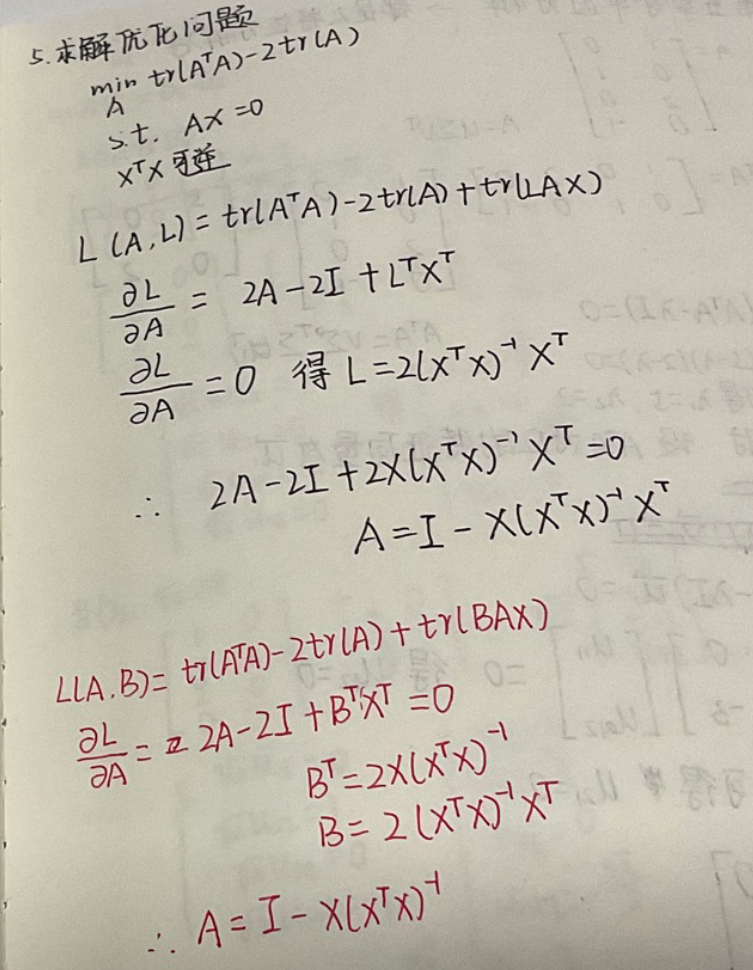 5.求解优化问题
min tr(AᵀA)-2tr(A)
A
s.t. AX=0
XᵀX 可逆
L(A,L)=tr(AᵀA)-2tr(A)+tr(LAX)
∂L/∂A = 2A-2I+LᵀXᵀ
∂L/∂A =0 得 L=2(XᵀX)⁻¹Xᵀ
∴ 2A-2I+2X(XᵀX)⁻¹Xᵀ=0
A=I-X(XᵀX)⁻¹Xᵀ
L(A,B)=tr(AᵀA)-2tr(A)+tr(BAX)
∂L/∂A = 2A-2I+BᵀXᵀ=0
Bᵀ=2X(XᵀX)⁻¹
B=2(XᵀX)⁻¹Xᵀ
∴ A=I-X(XᵀX)⁻¹